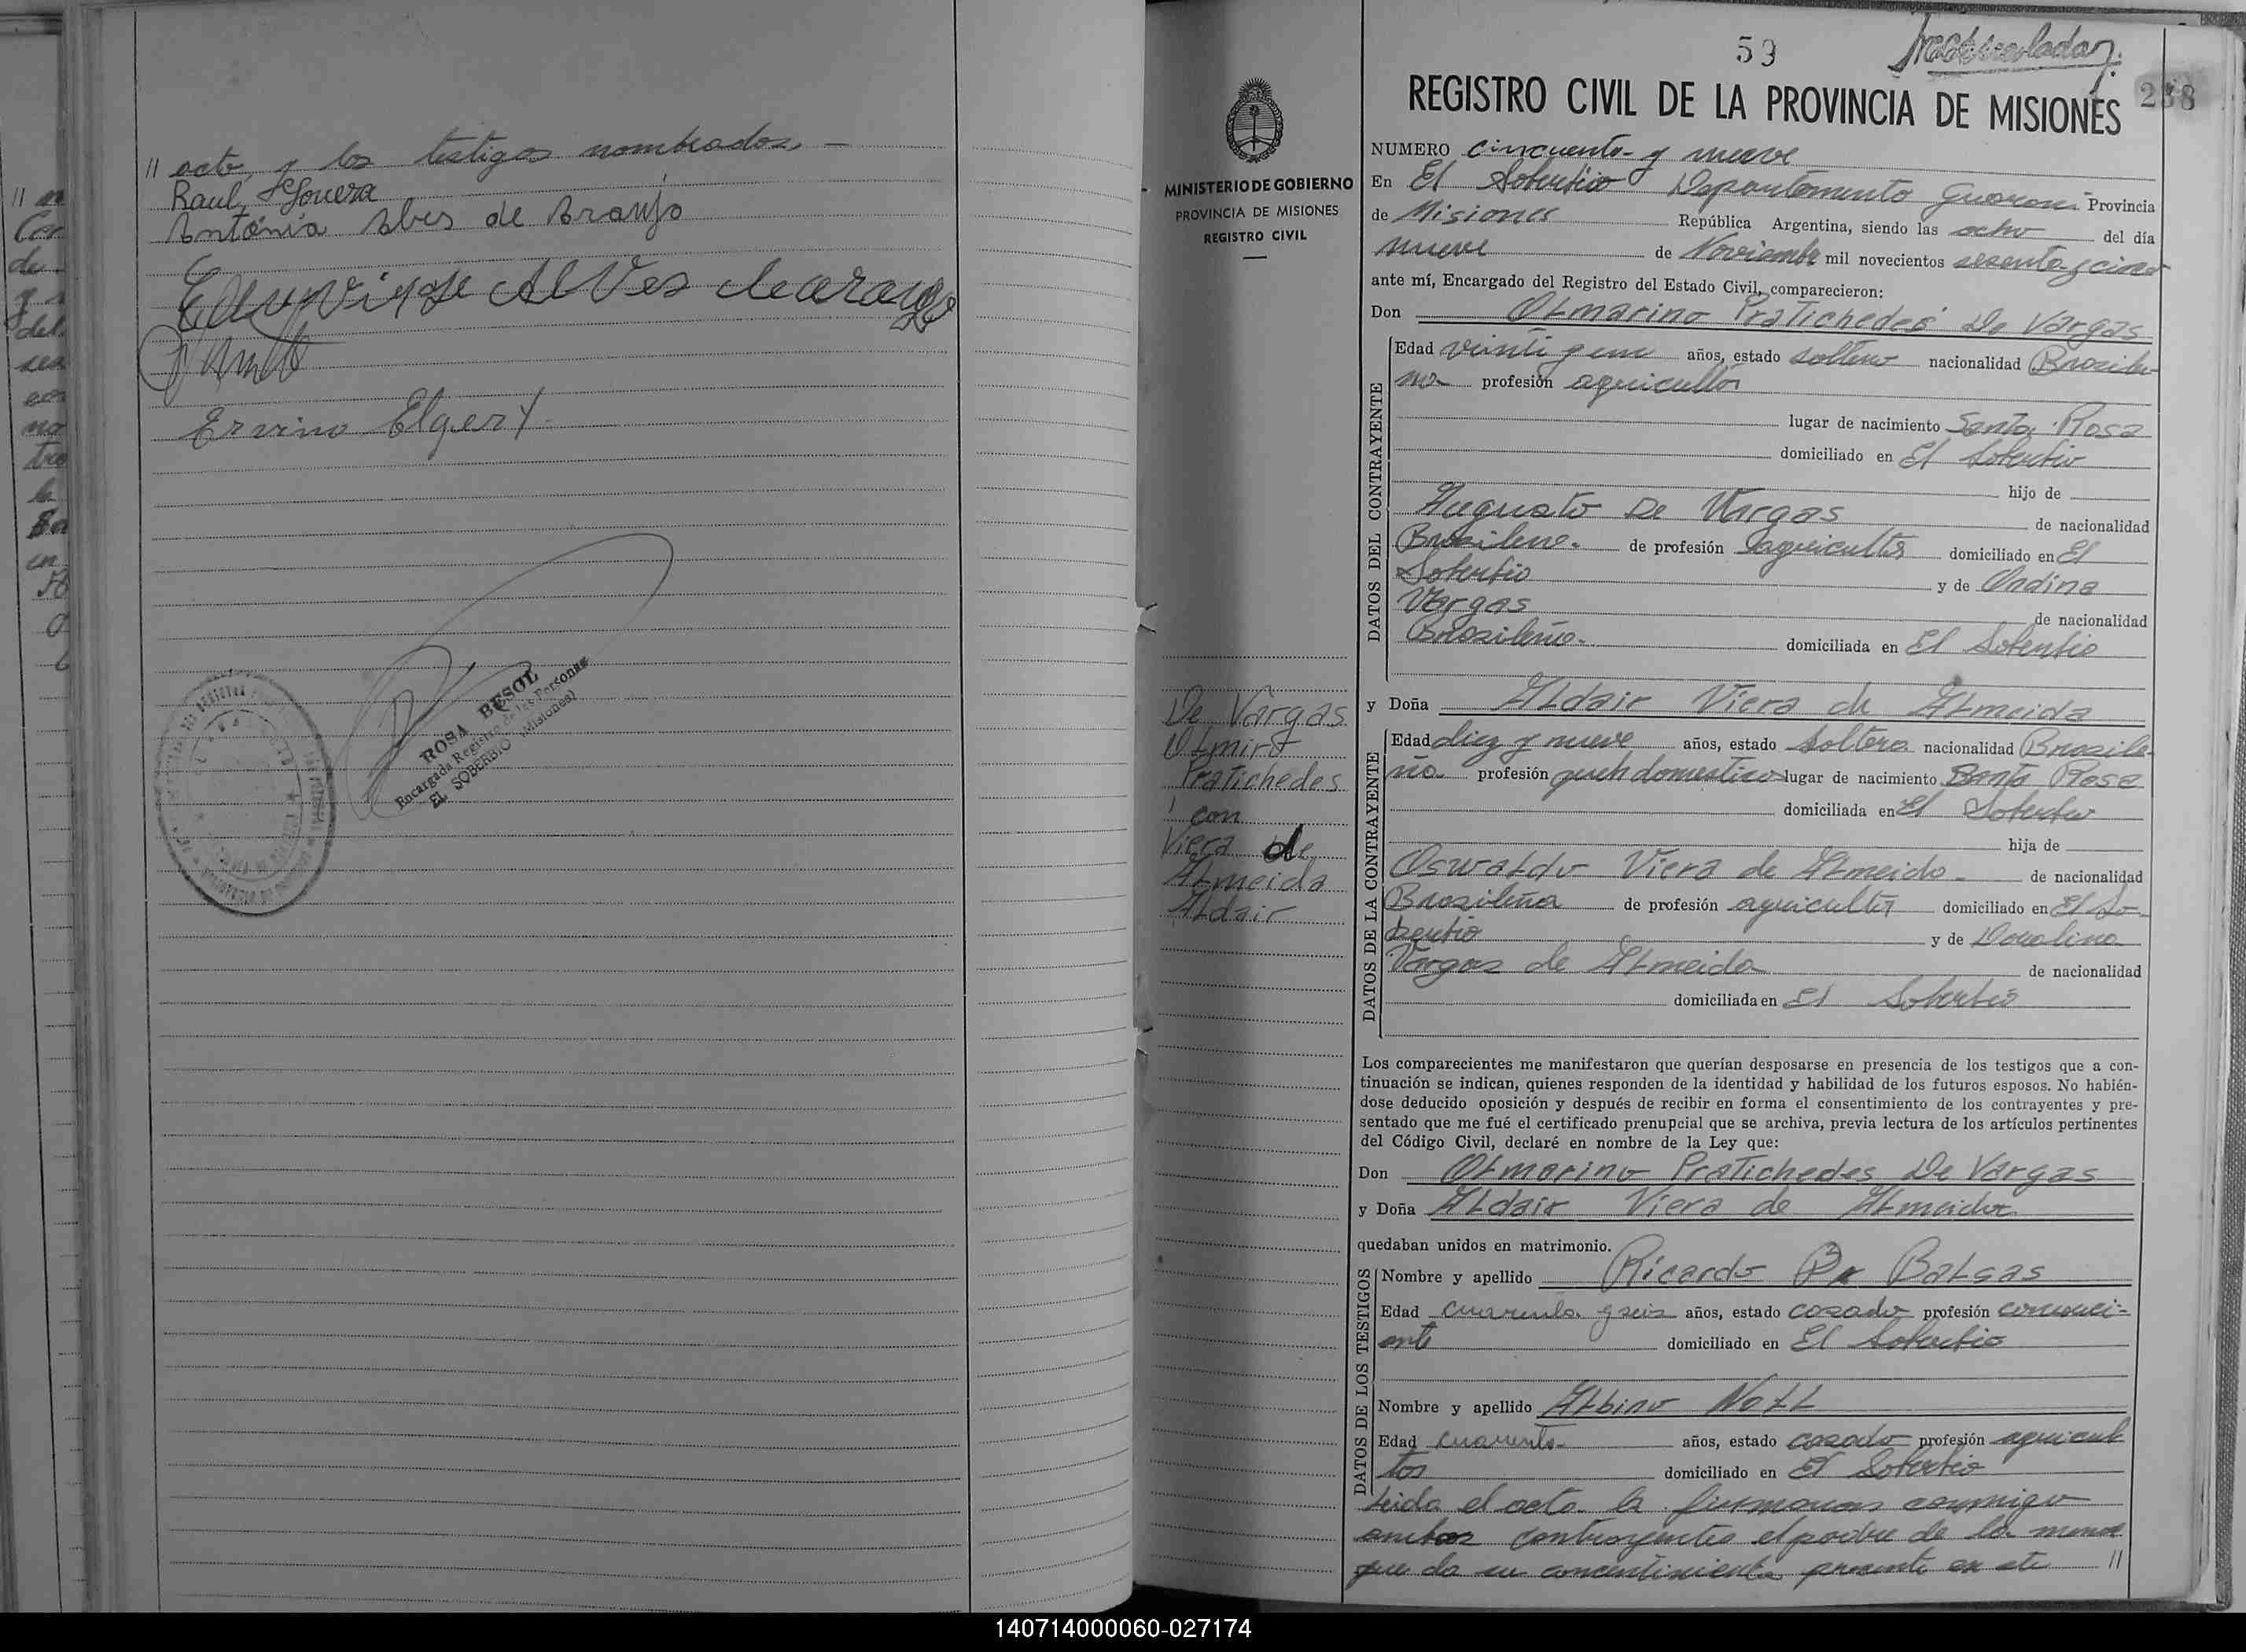 // acto, y los testigos nombrados. —
Raul Segovera
Antónia Alves de Araujo
Alves de araujo
Ervino Elgert
ROSA BESOL
Encargada Registro de las Personas
EL SOBERBIO (Misiones)
59
238
REGISTRO CIVIL DE LA PROVINCIA DE MISIONES
MINISTERIO DE GOBIERNO
PROVINCIA DE MISIONES
REGISTRO CIVIL
De Vargas
Olmiro
Pratichedes
con
Viera de
Almeida
Aldair
NUMERO cincuenta y nueve
En El Soberbio Departamento Guarani Provincia
de Misiones República Argentina, siendo las ocho del día
nueve de Noviembre mil novecientos sesenta y cinco
ante mí, Encargado del Registro del Estado Civil, comparecieron:
Don Olmarino Pratichedes De Vargas
DATOS DEL CONTRAYENTE
Edad veinti y un años, estado soltero nacionalidad Brasile-
ño profesión agricultor
lugar de nacimiento Santa Rosa
domiciliado en El Soberbio
hijo de
Augusto De Vargas de nacionalidad
Brasileno. de profesión agricultor domiciliado en El
Soberbio y de Ondina
Vargas de nacionalidad
Brasileña. domiciliada en El Soberbio
y Doña Aldair Viera de Almeida
DATOS DE LA CONTRAYENTE
Edad diez y nueve años, estado soltera nacionalidad Brasile-
ña. profesión queh domesticos lugar de nacimiento Santa Rosa
domiciliada en El Soberbio
hija de
Oswaldo Viera de Almeida de nacionalidad
Brasileña de profesión agricultor domiciliado en El So-
berbio y de Doralina
Vargas de Almeida de nacionalidad
domiciliada en El Soberbio
Los comparecientes me manifestaron que querían desposarse en presencia de los testigos que a con-
tinuación se indican, quienes responden de la identidad y habilidad de los futuros esposos. No habién-
dose deducido oposición y después de recibir en forma el consentimiento de los contrayentes y pre-
sentado que me fué el certificado prenupcial que se archiva, previa lectura de los artículos pertinentes
del Código Civil, declaré en nombre de la Ley que:
Don Olmarino Pratichedes De Vargas
y Doña Aldair Viera de Almeida
quedaban unidos en matrimonio.
DATOS DE LOS TESTIGOS
Nombre y apellido Ricardo Da Balsas
Edad cuarenta y seis años, estado casado profesión comerci-
ante domiciliado en El Soberbio
Nombre y apellido Albino Noll
Edad cuarenta años, estado casado profesión agricul
tor domiciliado en El Soberbio
Leida el acta la firmaron conmigo
ambos contrayentes el padre de la menor
que da su concentimiento presente en ste //
140714000060-027174